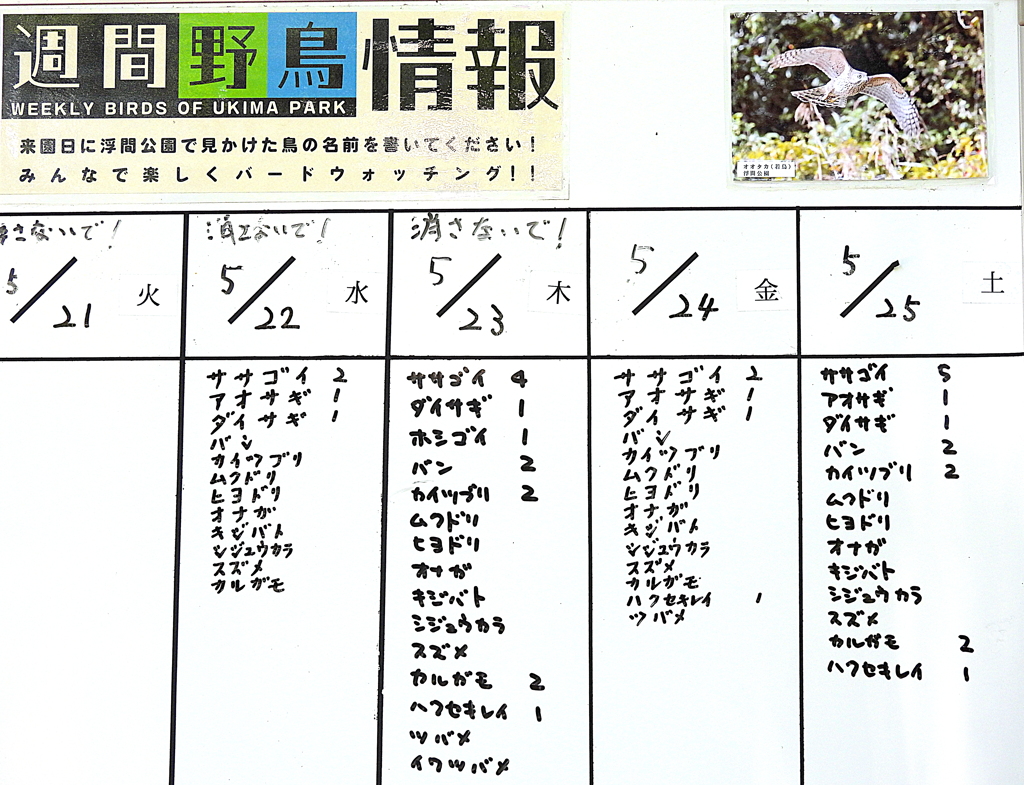 週間野鳥情報
WEEKLY BIRDS OF UKIMA PARK
来園日に浮間公園で見かけた鳥の名前を書いてください！
みんなで楽しくバードウォッチング！！
オオタカ(若鳥)
浮間公園
さないで！
5/21 火
消さないで！
5/22 水
ササゴイ 2
アオサギ 1
ダイサギ 1
バン
カイツブリ
ムクドリ
ヒヨドリ
オナガ
キジバト
シジュウカラ
スズメ
カルガモ
消さないで！
5/23 木
ササゴイ 4
ダイサギ 1
ホシゴイ 1
バン 2
カイツブリ 2
ムクドリ
ヒヨドリ
オナガ
キジバト
シジュウカラ
スズメ
カルガモ 2
ハクセキレイ 1
ツバメ
イワツバメ
5/24 金
ササゴイ 2
アオサギ 1
ダイサギ 1
バン
カイツブリ
ムクドリ
ヒヨドリ
オナガ
キジバト
シジュウカラ
スズメ
カルガモ
ハクセキレイ 1
ツバメ
5/25 土
ササゴイ 5
アオサギ 1
ダイサギ 1
バン 2
カイツブリ 2
ムクドリ
ヒヨドリ
オナガ
キジバト
シジュウカラ
スズメ
カルガモ 2
ハクセキレイ 1